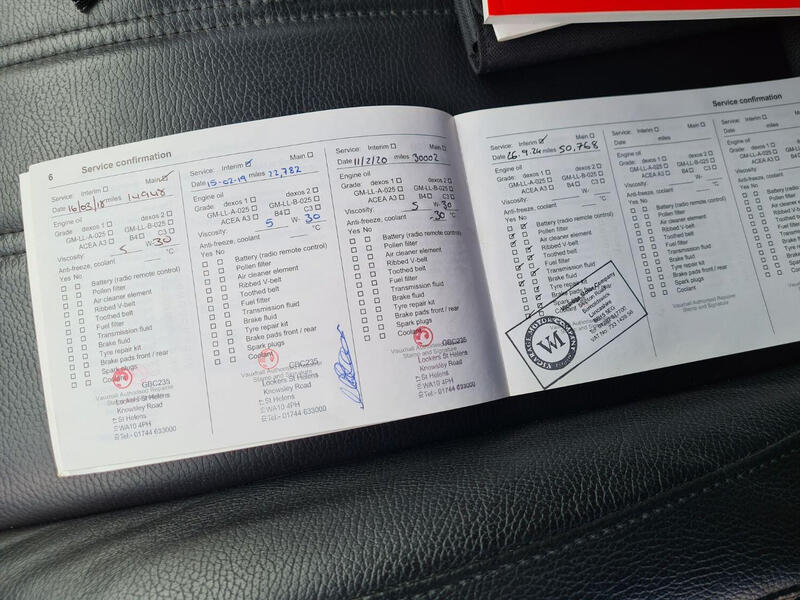 6 Service confirmation
Service: Interim ☐ Main ☑
Date 16/03/18 miles 14948
Engine oil
Grade: dexos 1 ☐ dexos 2 ☐
GM-LL-A-025 ☐ GM-LL-B-025 ☐
ACEA A3 ☐ B4 ☐ C3 ☐
Viscosity: 5 W- 30
Anti-freeze, coolant °C
Yes No
Battery (radio remote control)
Pollen filter
Air cleaner element
Ribbed V-belt
Toothed belt
Fuel filter
Transmission fluid
Brake fluid
Tyre repair kit
Brake pads front / rear
Spark plugs
Coolant
Vauxhall Authorised Repairer
Stamp and Signature
GBC235
Lockers St Helens
Knowsley Road
St Helens
WA10 4PH
Tel:- 01744 633000
Service: Interim ☑ Main ☐
Date 15-02-19 miles 22,782
Engine oil
Grade: dexos 1 ☐ dexos 2 ☐
GM-LL-A-025 ☐ GM-LL-B-025 ☐
ACEA A3 ☐ B4 ☐ C3 ☐
Viscosity: 5 W- 30
Anti-freeze, coolant °C
Yes No
Battery (radio remote control)
Pollen filter
Air cleaner element
Ribbed V-belt
Toothed belt
Fuel filter
Transmission fluid
Brake fluid
Tyre repair kit
Brake pads front / rear
Spark plugs
Coolant
Vauxhall Authorised Repairer
Stamp and Signature
GBC235
Lockers St Helens
Knowsley Road
St Helens
WA10 4PH
Tel:- 01744 633000
Service: Interim ☐ Main ☐
Date 11/2/20 miles 30002
Engine oil
Grade: dexos 1 ☐ dexos 2 ☐
GM-LL-A-025 ☐ GM-LL-B-025 ☐
ACEA A3 ☐ B4 ☐ C3 ☐
Viscosity: 5 W- 30
Anti-freeze, coolant -30 °C
Yes No
Battery (radio remote control)
Pollen filter
Air cleaner element
Ribbed V-belt
Toothed belt
Fuel filter
Transmission fluid
Brake fluid
Tyre repair kit
Brake pads front / rear
Spark plugs
Coolant
Vauxhall Authorised Repairer
Stamp and Signature
GBC235
Lockers St Helens
Knowsley Road
St Helens
WA10 4PH
Tel:- 01744 633000
Service confirmation
Service: Interim ☑ Main ☐
Date 26.9.24 miles 50,768
Engine oil
Grade: dexos 1 ☐ dexos 2 ☐
GM-LL-A-025 ☐ GM-LL-B-025 ☐
ACEA A3 ☐ B4 ☐ C3 ☐
Viscosity: W-
Anti-freeze, coolant °C
Yes No
Battery (radio remote control)
Pollen filter
Air cleaner element
Ribbed V-belt
Toothed belt
Fuel filter
Transmission fluid
Brake fluid
Tyre repair kit
Brake pads
Spark plugs
Coolant
VICARAGE MOTOR COMPANY
VM
Motor Company
Lancashire
Service: Interim ☐ Main ☐
Date miles
Engine oil
Grade: dexos 1 ☐ dexos 2 ☐
GM-LL-A-025 ☐ GM-LL-B-025 ☐
ACEA A3 ☐ B4 ☐ C3 ☐
Viscosity: W-
Anti-freeze, coolant °C
Yes No
Battery (radio remote control)
Pollen filter
Air cleaner element
Ribbed V-belt
Toothed belt
Fuel filter
Transmission fluid
Brake fluid
Tyre repair kit
Brake pads front / rear
Spark plugs
Coolant
Vauxhall Authorised Repairer
Stamp and Signature
Service: Interim ☐
Date
Engine oil
Grade: dexos 1 ☐
GM-LL-A-025 ☐
ACEA A3 ☐
Viscosity:
Anti-freeze, coolant
Yes No
Battery (radio
Pollen filter
Air cleaner
Ribbed V-belt
Toothed belt
Fuel filter
Transmission
Brake fluid
Tyre repair kit
Brake pads
Spark plugs
Coolant